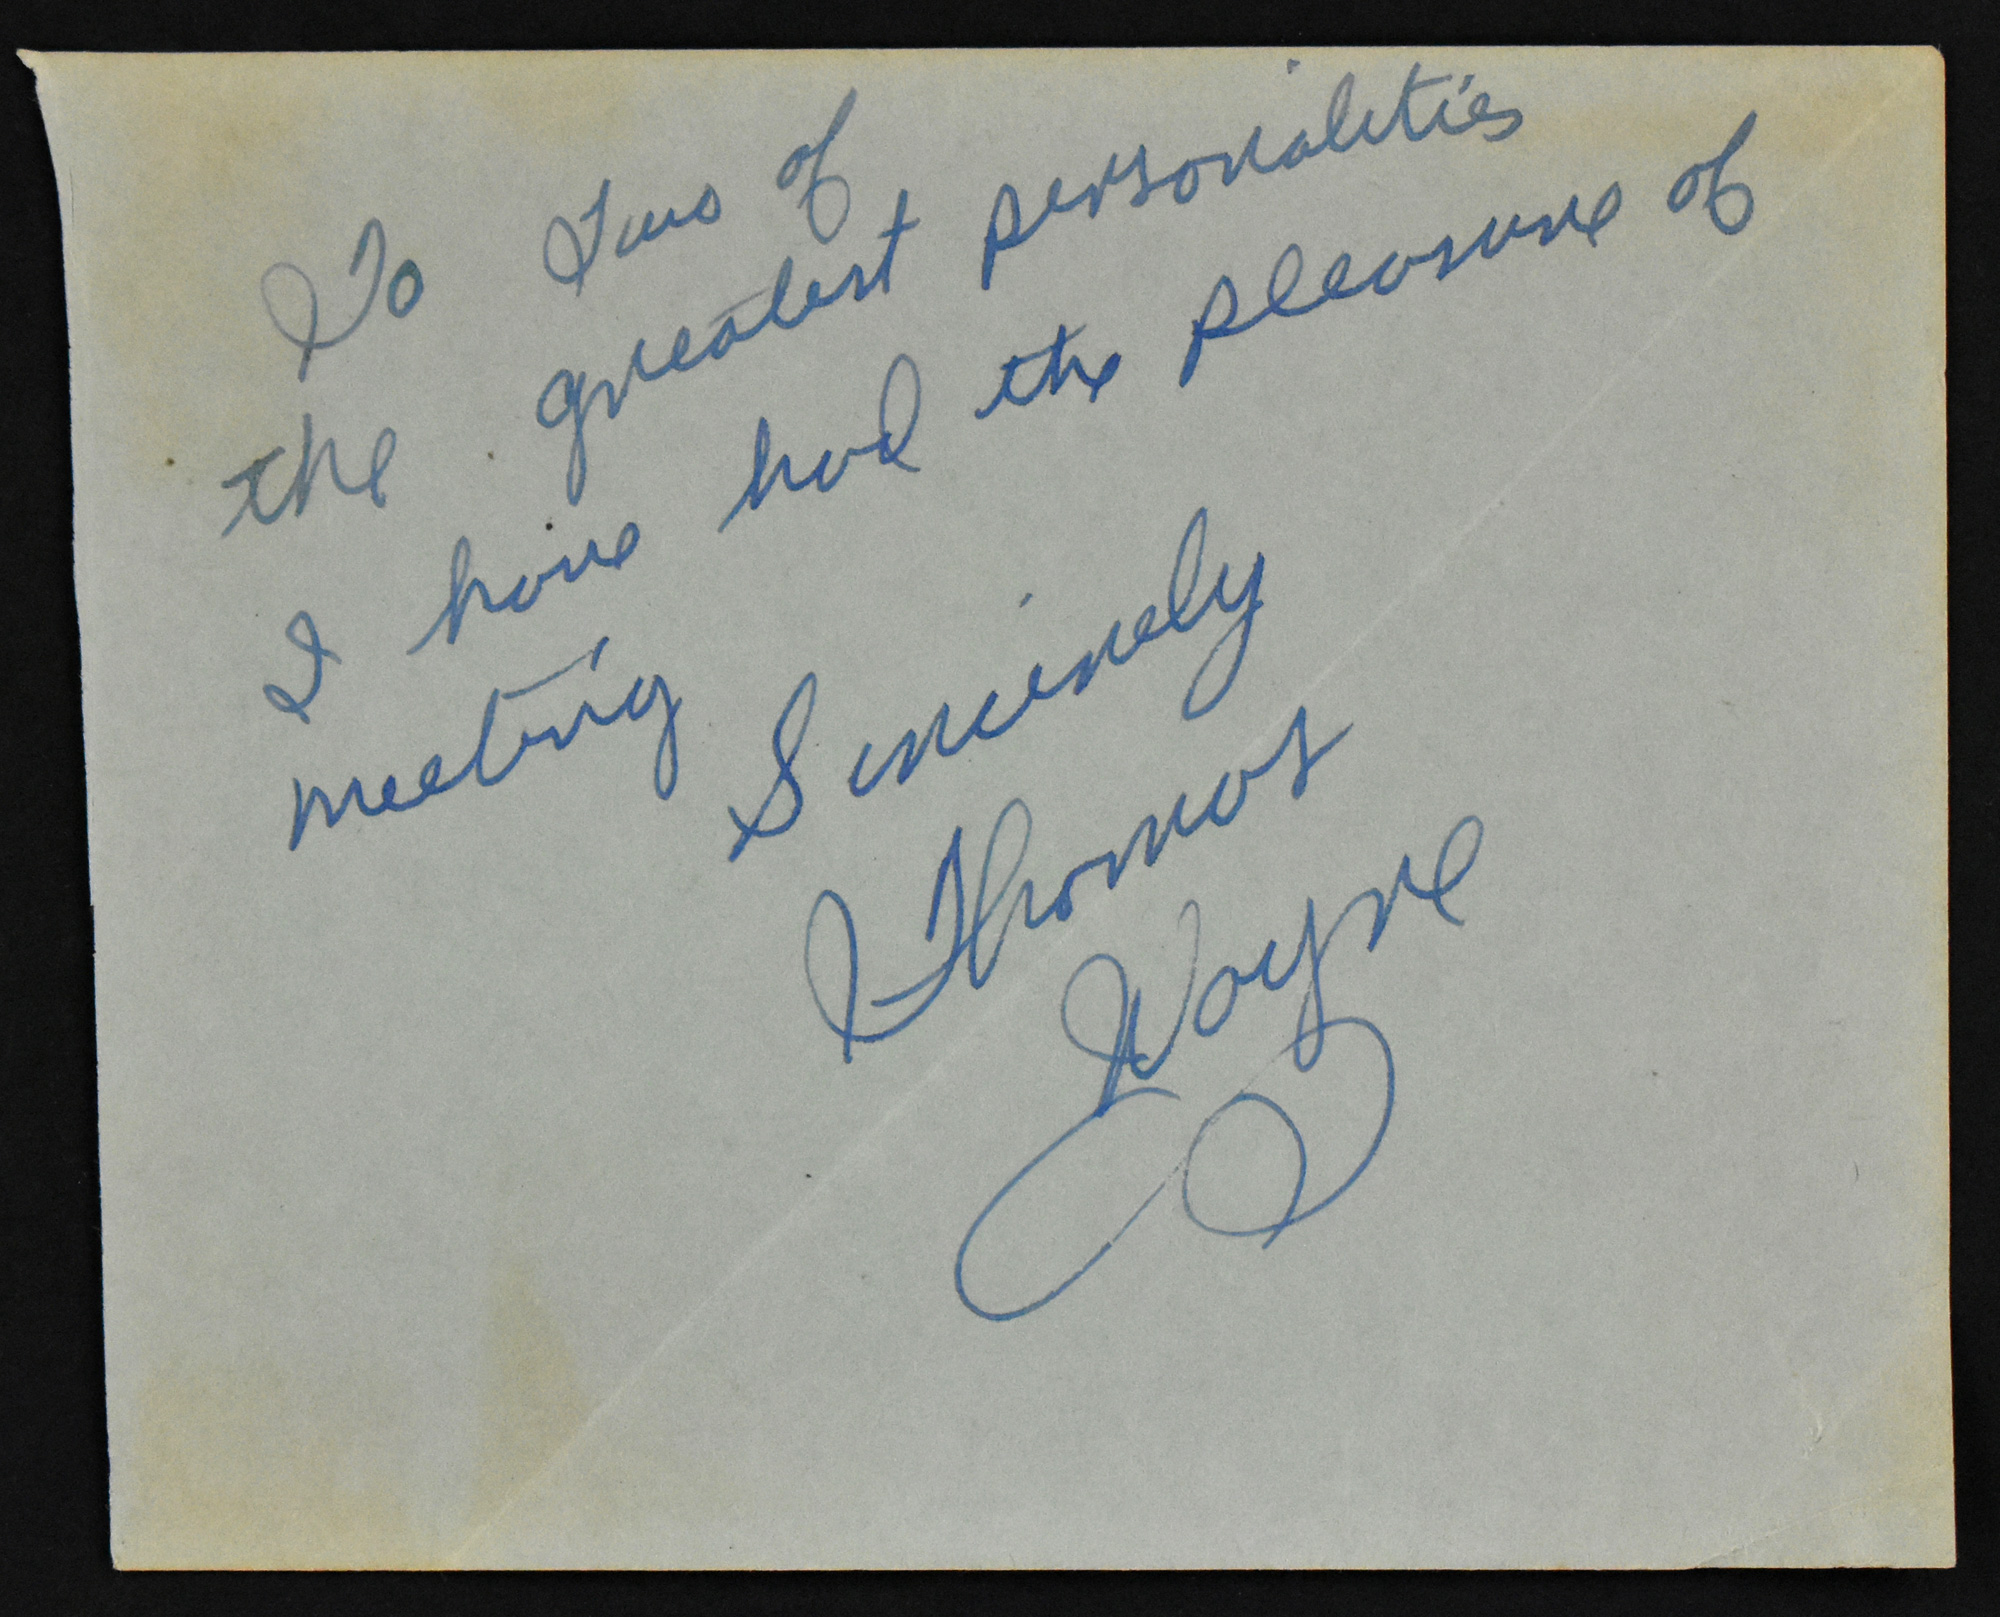 To Two of
the greatest personalities
I have had the pleasure of
meeting
Sincerely
Thomas
Wayne